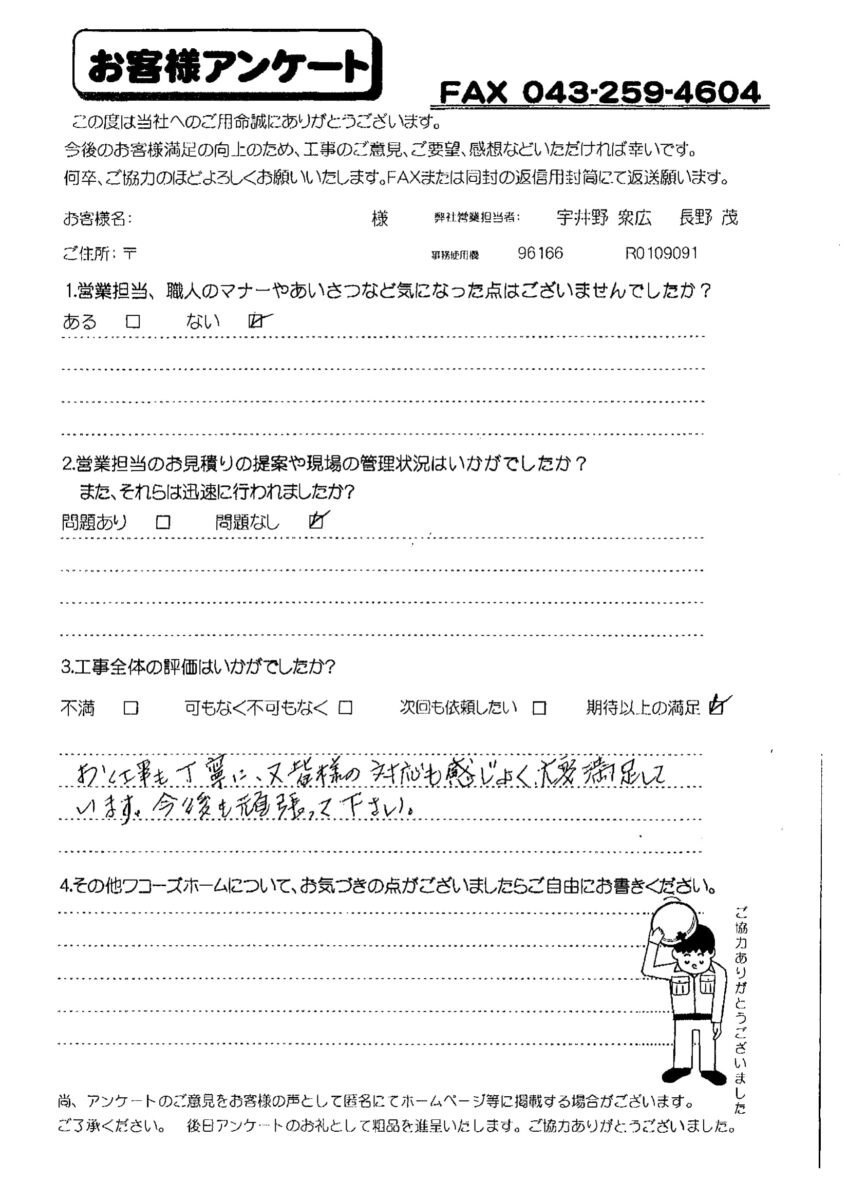 お客様アンケート
FAX 043-259-4604
この度は当社へのご用命誠にありがとうございます。
今後のお客様満足の向上のため、工事のご意見、ご要望、感想などいただければ幸いです。
何卒、ご協力のほどよろしくお願いいたします。FAXまたは同封の返信用封筒にて返送願います。
お客様名: 様 弊社営業担当者: 宇井野 衆広 長野 茂
ご住所:〒 事務使用欄 96166 R0109091
1.営業担当、職人のマナーやあいさつなど気になった点はございませんでしたか?
ある □ ない ☑
2.営業担当のお見積りの提案や現場の管理状況はいかがでしたか?
また、それらは迅速に行われましたか?
問題あり □ 問題なし ☑
3.工事全体の評価はいかがでしたか?
不満 □ 可もなく不可もなく □ 次回も依頼したい □ 期待以上の満足 ☑
お仕事も丁寧に、又皆様の対応も感じよく、大変満足して
います。今後も頑張って下さい。
4.その他ワコーズホームについて、お気づきの点がございましたらご自由にお書きください。
ご協力ありがとうございました
尚、アンケートのご意見をお客様の声として匿名にてホームページ等に掲載する場合がございます。
ご了承ください。 後日アンケートのお礼として粗品を進呈いたします。ご協力ありがとうございました。